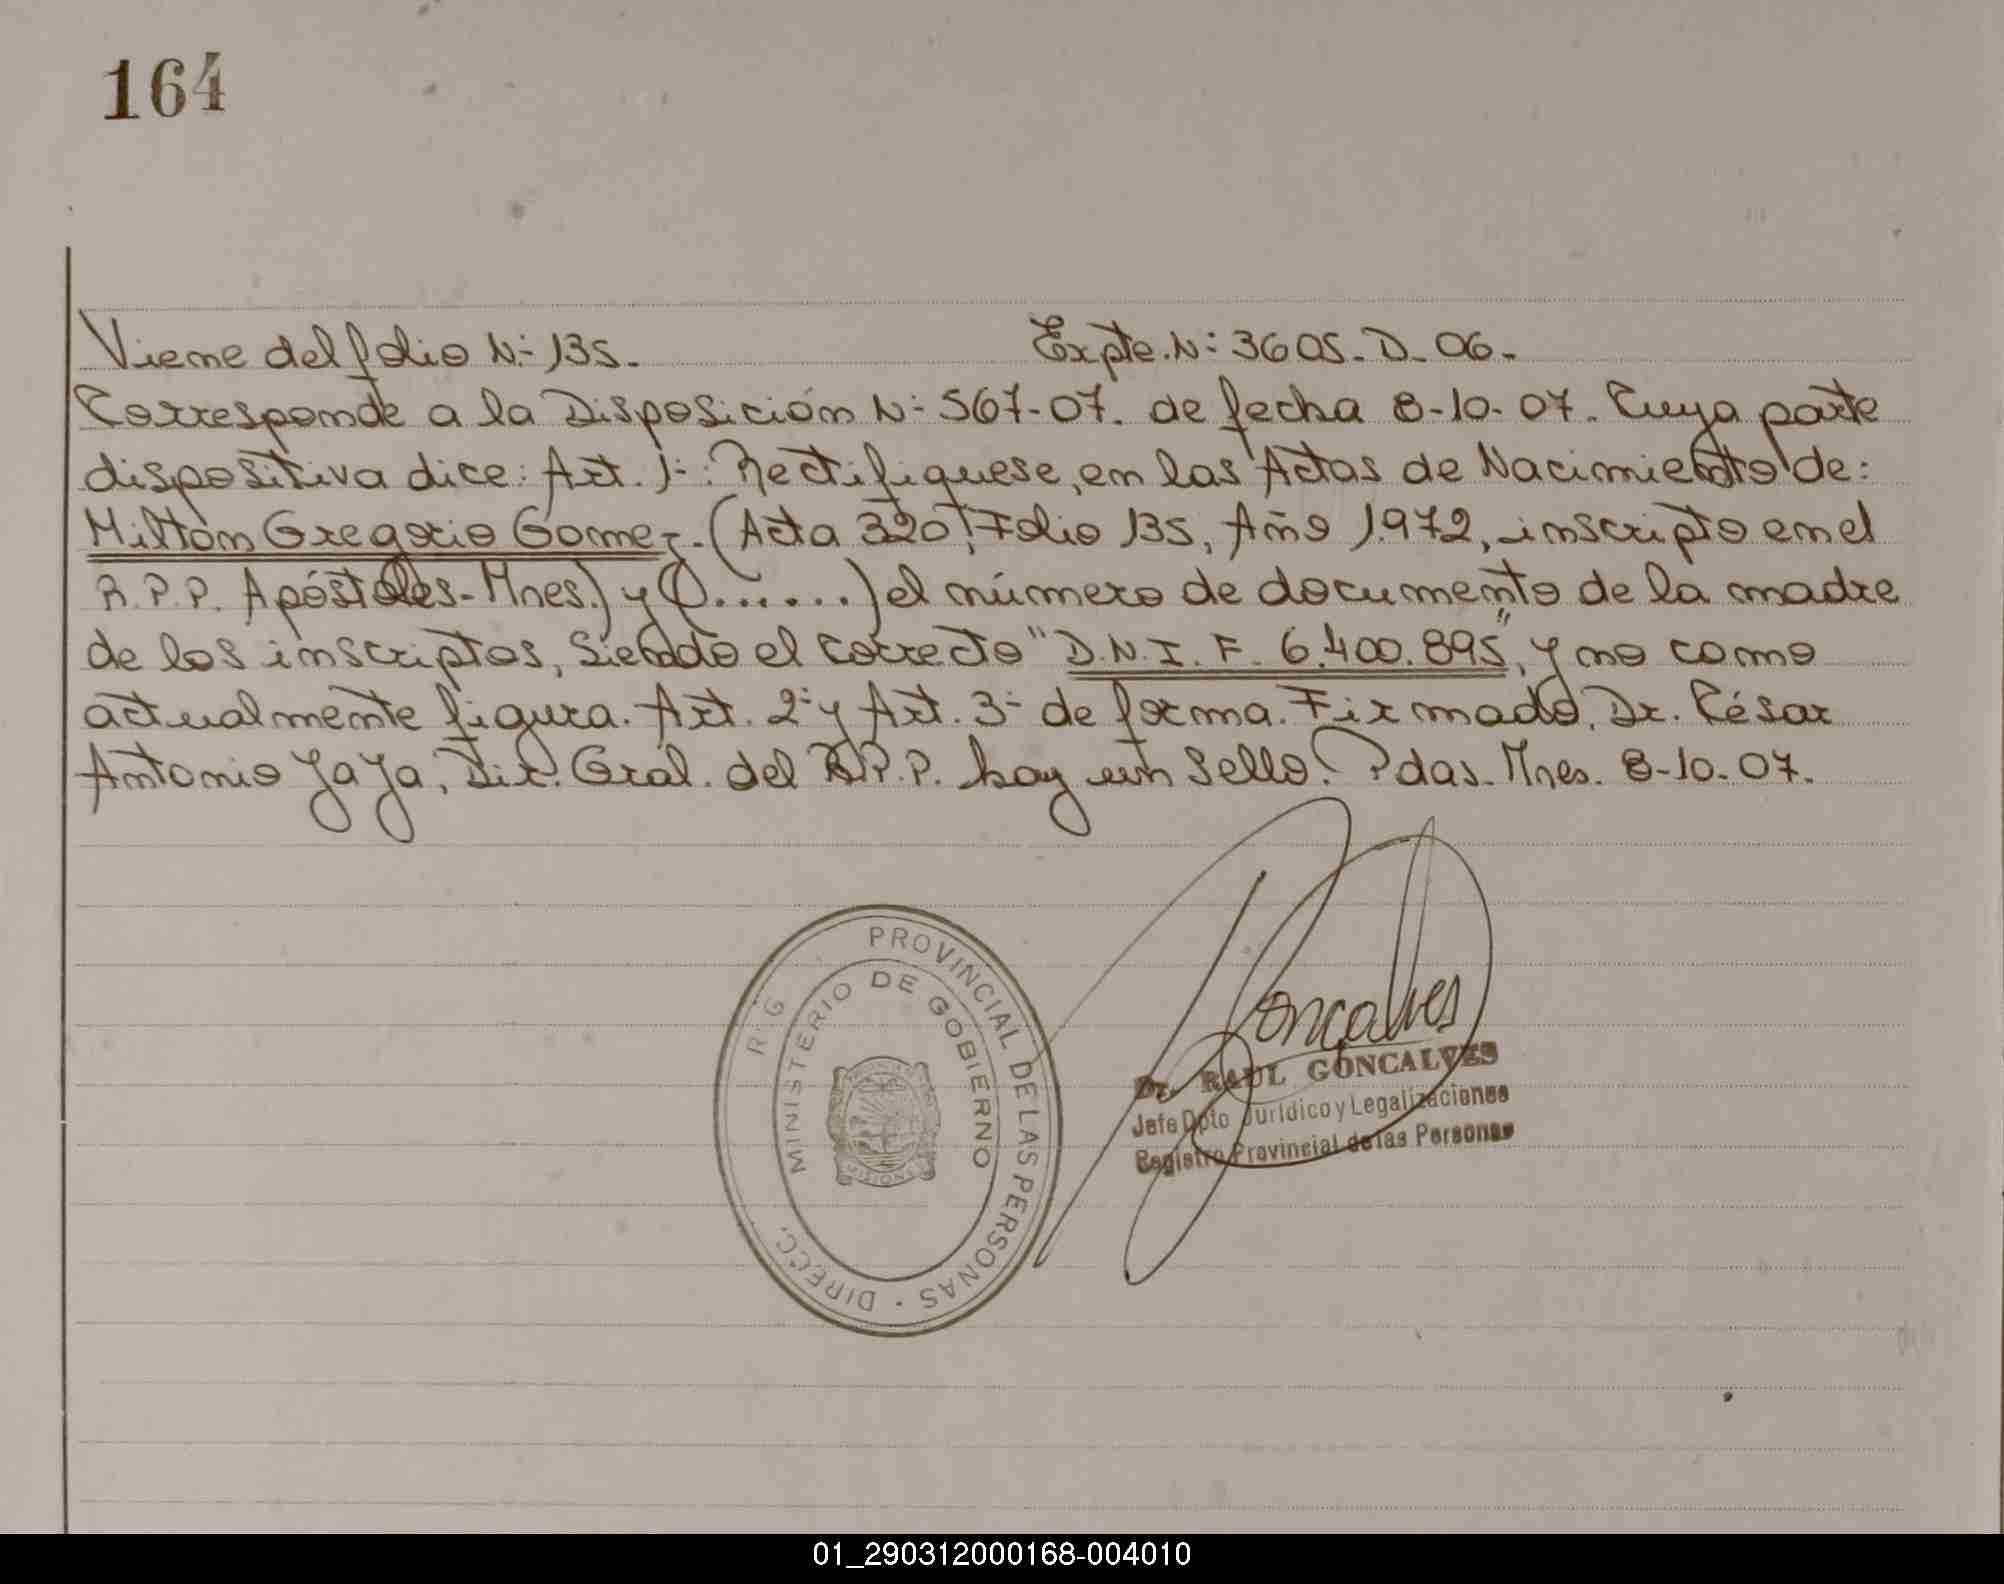 164
Viene del folio N:- 135.- Expte. N: 3605-D-06.-
Corresponde a la Disposición N:- 567-07. de fecha 8-10-07. Cuya parte
dispositiva dice: Art. 1:-: Rectifiquese, en las Actas de Nacimiento de:
Milton Gregorio Gomez.- (Acta 320, Folio 135, Año 1.972, inscripto en el
R.P.P. Apóstoles-Mnes.) y (.......) el número de documento de la madre
de los inscriptos, Siendo el correcto "D.N.I. F. 6.400.895", y no como
actualmente figura. Art. 2:- y Art. 3:- de forma. Firmado, Dr. César
Antonio Yaya, Dir. Gral. del R.P.P. hay un Sello. Pdas. Mnes. 8-10-07.
DIRECC. R G PROVINCIAL DE LAS PERSONAS
MINISTERIO DE GOBIERNO
MISIONES
Goncalves
Dr. RAUL GONCALVES
Jefe Dpto Jurídico y Legalizaciones
Registro Provincial de las Personas
01_290312000168-004010